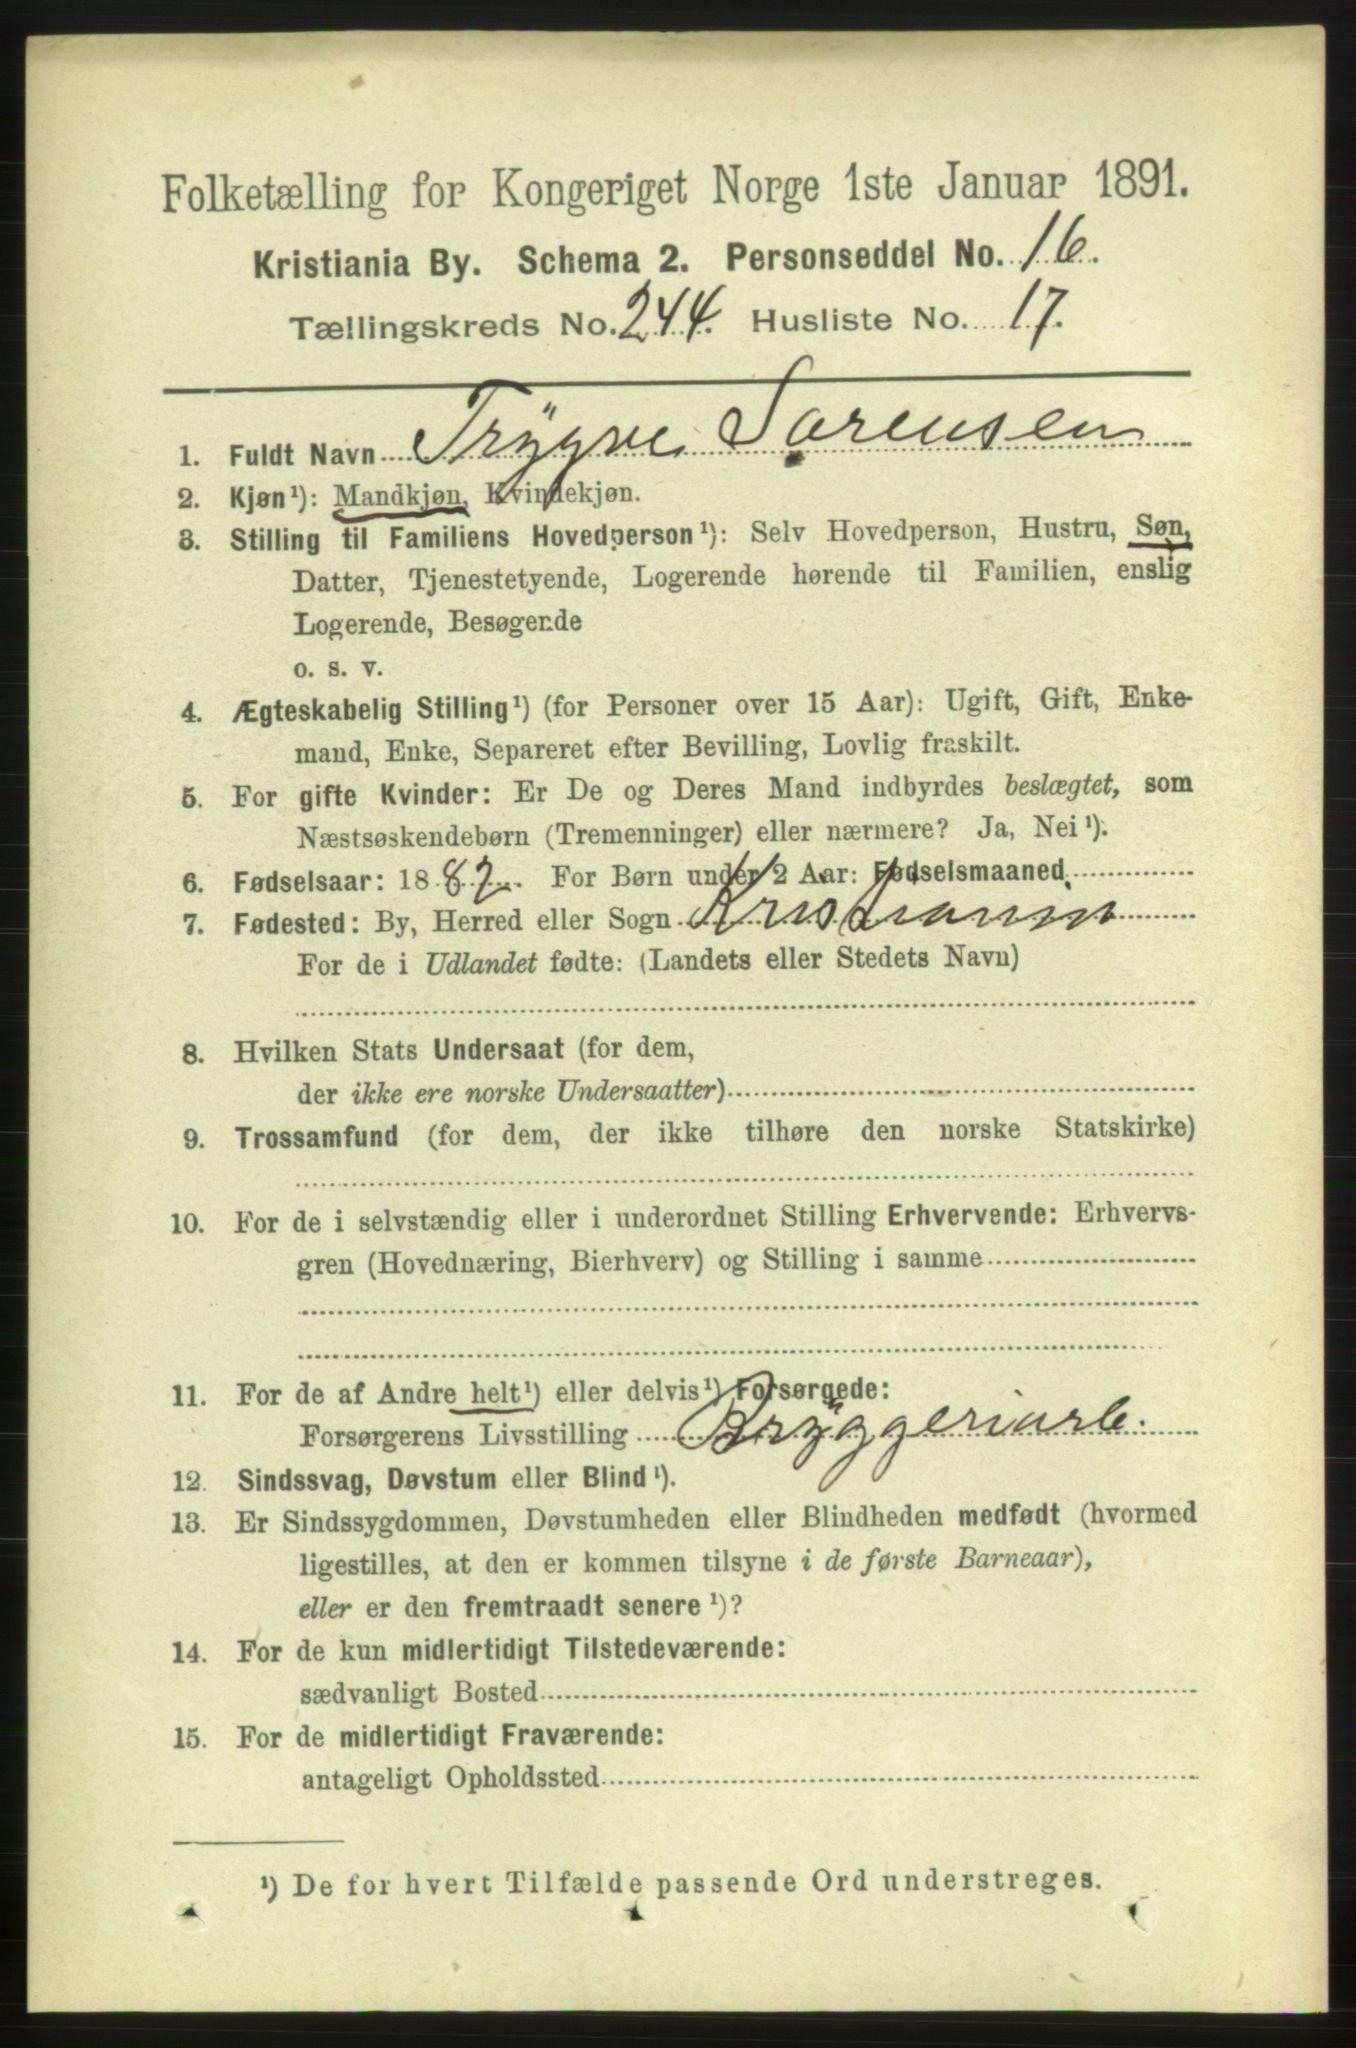 Folketælling for Kongeriget Norge 1ste Januar 1891.
Kristiania By. Schema 2. Personseddel No. 16.
Tællingskreds No. 244. Husliste No. 17.
1. Fuldt Navn Trÿgve Sørensen
2. Kjøn¹): Mandkjøn, Kvindekjøn.
3. Stilling til Familiens Hovedperson¹): Selv Hovedperson, Hustru, Søn,
Datter, Tjenestetyende, Logerende hørende til Familien, enslig
Logerende, Besøgende
o. s. v.
4. Ægteskabelig Stilling¹) (for Personer over 15 Aar): Ugift, Gift, Enke-
mand, Enke, Separeret efter Bevilling, Lovlig fraskilt.
5. For gifte Kvinder: Er De og Deres Mand indbyrdes beslægtet, som
Næstsøskendebørn (Tremenninger) eller nærmere? Ja, Nei¹).
6. Fødselsaar: 1882. For Børn under 2 Aar: Fødselsmaaned
7. Fødested: By, Herred eller Sogn Kristiania
For de i Udlandet fødte: (Landets eller Stedets Navn)
8. Hvilken Stats Undersaat (for dem,
der ikke ere norske Undersaatter)
9. Trossamfund (for dem, der ikke tilhøre den norske Statskirke)
10. For de i selvstændig eller i underordnet Stilling Erhvervende: Erhvervs-
gren (Hovednæring, Bierhverv) og Stilling i samme
11. For de af Andre helt¹) eller delvis¹) Forsørgede:
Forsørgerens Livsstilling Brÿggeriarb.
12. Sindssvag, Døvstum eller Blind¹).
13. Er Sindssygdommen, Døvstumheden eller Blindheden medfødt (hvormed
ligestilles, at den er kommen tilsyne i de første Barneaar),
eller er den fremtraadt senere¹)?
14. For de kun midlertidigt Tilstedeværende:
sædvanligt Bosted
15. For de midlertidigt Fraværende:
antageligt Opholdssted
¹) De for hvert Tilfælde passende Ord understreges.